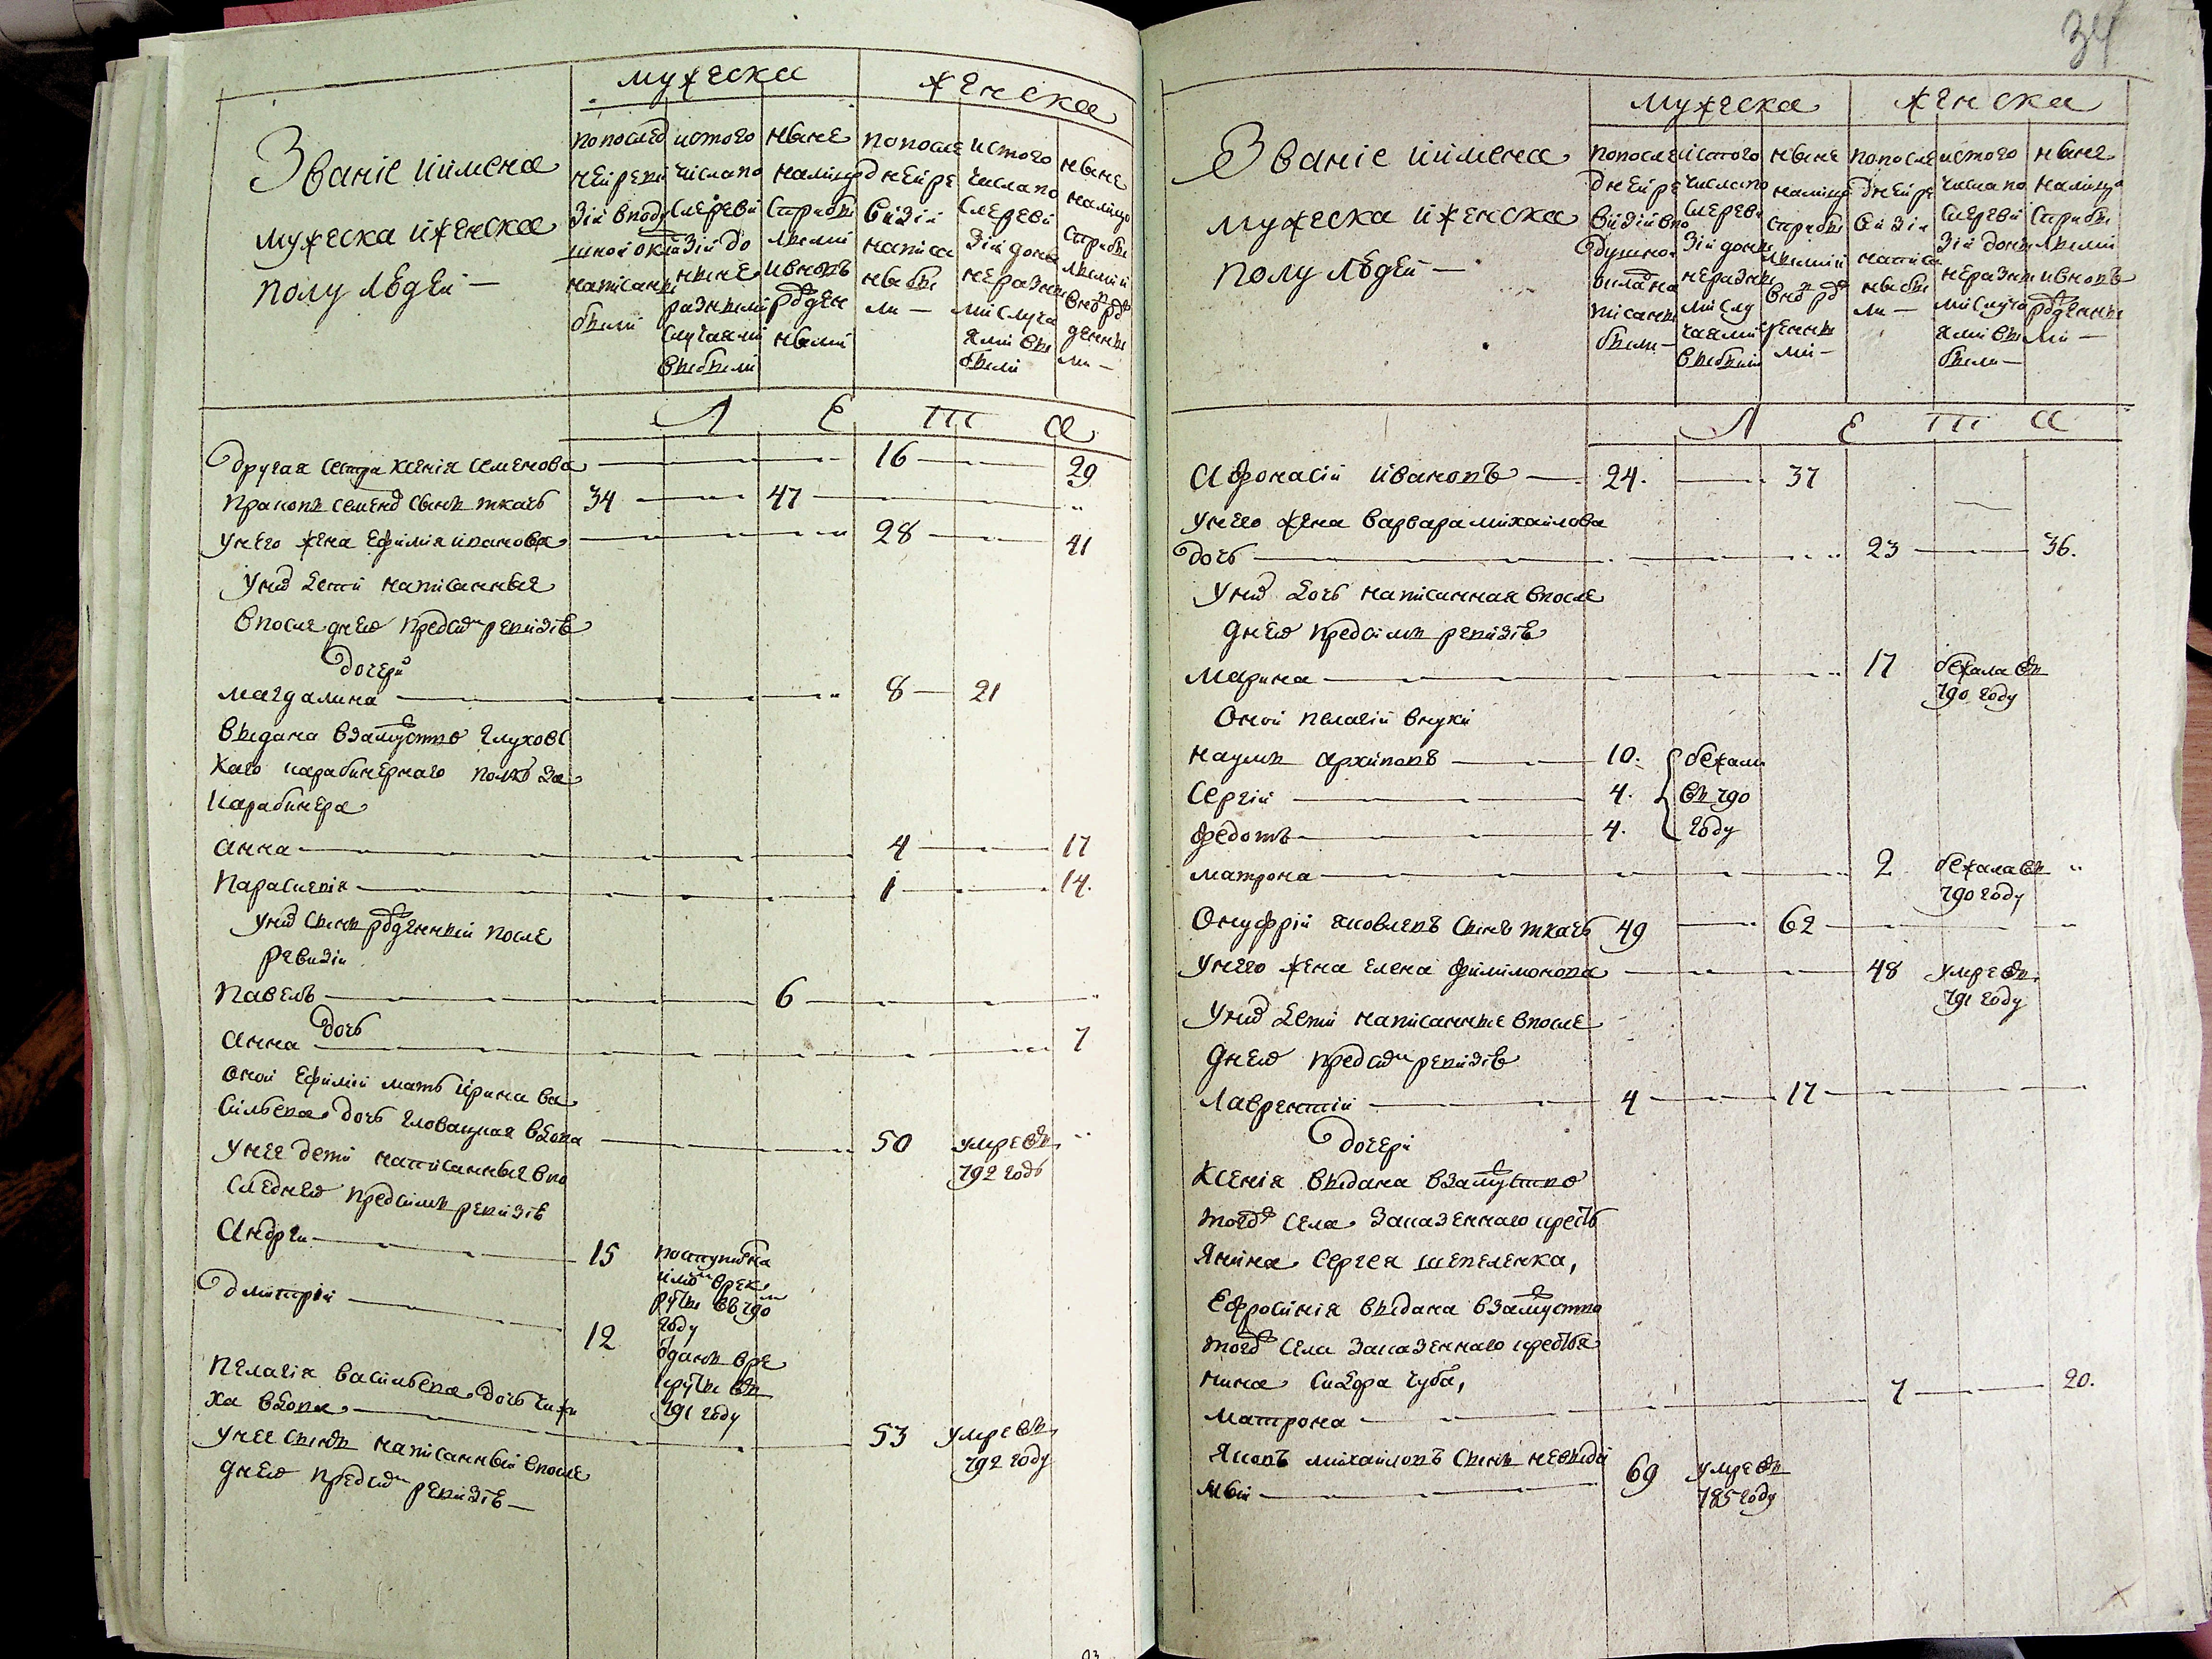 мужеска
женска
Званіе и имена
мужеска и женска
полу людей —
по послед
ней реви
зіи в поду
шной окла
написаны
были
ис того
числа по
сле реви
зіи до
ныне
разными
случаями
выбыли
ныне
налицо
с прибы
лыми
и вновь
рожден
ными
по после
дней ре
визіи
написа
ны бы
ли —
ис того
числа по
сле реви
зіи доны
не разны
ми случа
ями вы
были
ныне
налицо
с прибы
лыми и
вновь ро
жденны
ми —
Л Е Т А
другая сестра Ксенія Семенова 16 29
Семенов сынъ ткачь 34 47
у него жена Ефимія Иванова 28 41
у них дети написанные
в последней пред сим ревизіе
дочери
Магдалина 8 21
выдана в замужство Глуховс
каго карабинернаго полку за
карабинера
Анна 4 17
Параскевія 1 14.
у них сынъ рожденный после
ревизіи
Павелъ 6
дочь
Анна 7
оной Ефиміи мать Ирина Ва
сильева дочь вдова 50 умре въ
792 годѣ
у нее дети написанные в по
следней пред симъ ревизіе
Андрей 15
в рек
руты въ 790
году
Дмитрій 12 отданъ в ре
круты въ
791 году
Пелагія Васильева дочь
ха вдова 53 умре въ
792 году
у нее сынъ написанный в после
дней пред сим ревизіе —
34
мужеска
женска
Званіе и имена
мужеска и женска
полу людей —
по после
дней ре
визіи в по
душно
оклад на
писаны
были —
ис того
числа по
сле реви
зіи доны
не разны
ми слу
чаями
выбыли
ныне
налицо
с прибы
лыми и
вновь ро
жденны
ми —
по после
дней ре
визіи
написа
ны бы
ли —
ис того
числа по
сле реви
зіи доны
не разны
ми случа
ями вы
были —
ныне
налицо
с прибы
лыми
и вновь
рожденны
ми —
Л Е Т А
Афонасій Ивановъ 24. 37
у него жена Варвара Михайлова
дочь 23 36.
у них дочь написанная в после
дней пред симъ ревизіе
Марина 17 бежала въ
790 году
оной Пелагіи внуки
Наумъ Архиповъ 10. бежали
Сергій 4. въ 790
Федотъ 4. году
Матрона 2 бежала въ
790 году
Онуфрій Яковлевъ сынъ ткачь 49 62
у него жена Елена Филимонова 48 умре въ
791 году
у них дети написанные в после
дней пред сим ревизіе
Лаврентій 4 17
дочери
Ксенія выдана в замужство
того ж села за казеннаго кресть
янина Сергея Шепеленка,
Ефросинія выдана в замужство
того ж села за казеннаго крестья
нина Сидора Чуба,
Матрона 7 20.
Яковъ Михайловъ сынъ невиди
мый 69 умре въ
785 году